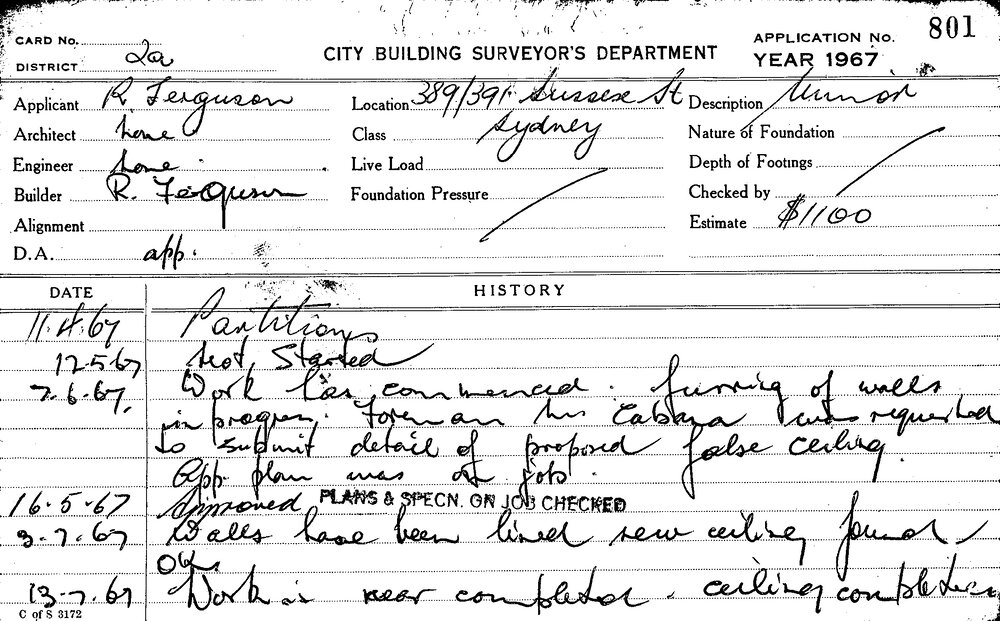 CARD No.
DISTRICT 2a
CITY BUILDING SURVEYOR'S DEPARTMENT
APPLICATION No. 801
YEAR 1967
Applicant R. Ferguson
Location 389/391 Sussex St
Sydney
Description Minor
Architect none
Class
Nature of Foundation
Engineer none
Live Load
Depth of Footings
Builder R. Ferguson
Foundation Pressure
Checked by
Alignment
Estimate $1100
D.A. app.
DATE HISTORY
11.4.67 Partitions
12.5.67 Not Started
7.6.67. Work has commenced. furring of walls
in progress. Foreman Mr Cabana was requested
to submit detail of proposed false ceiling.
App. plan was on job.
16.5.67 Approved PLANS & SPECN. ON JOB CHECKED
3.7.67 Walls have been lined new ceiling found
OK.
13.7.67 Work is near completed. ceiling completed
C of S 3172